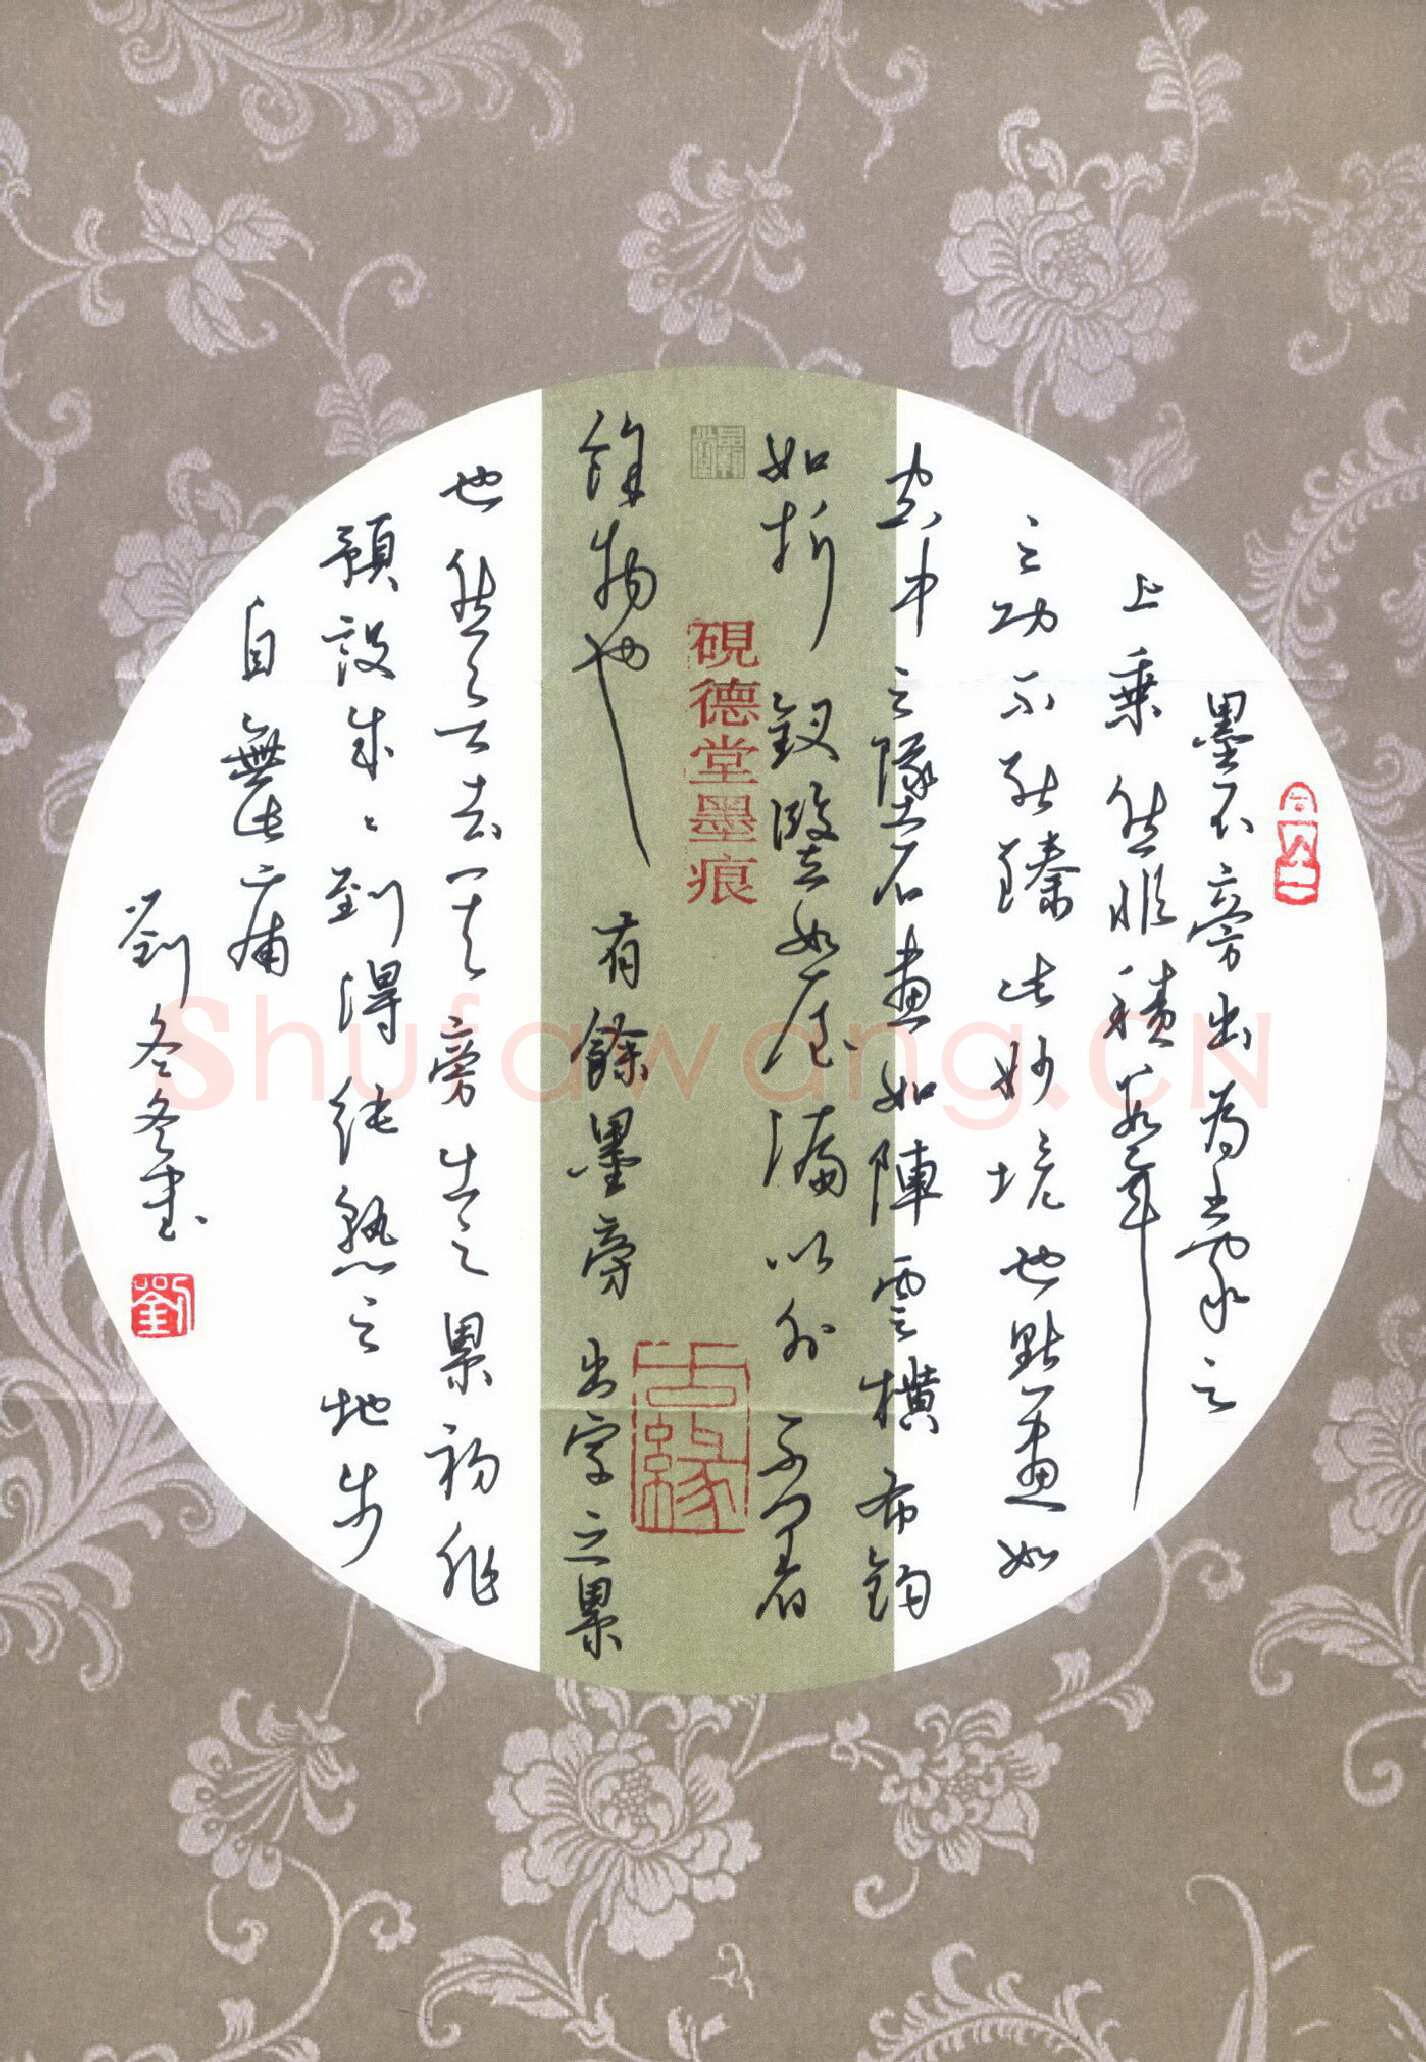 墨不旁出為書家之
上乘然非積數年
之功不能臻此妙境也點畫如
空中之墜石畫如陣雲橫布鉤
如折釵豎如屋漏以外不著
餘物也有餘墨旁出字之累
也然云去其旁生之累初非
預設生生到得純熟之地步
自無此病
劉冬冬書
劉
硯德堂墨痕
古緣
Shufawang.CN